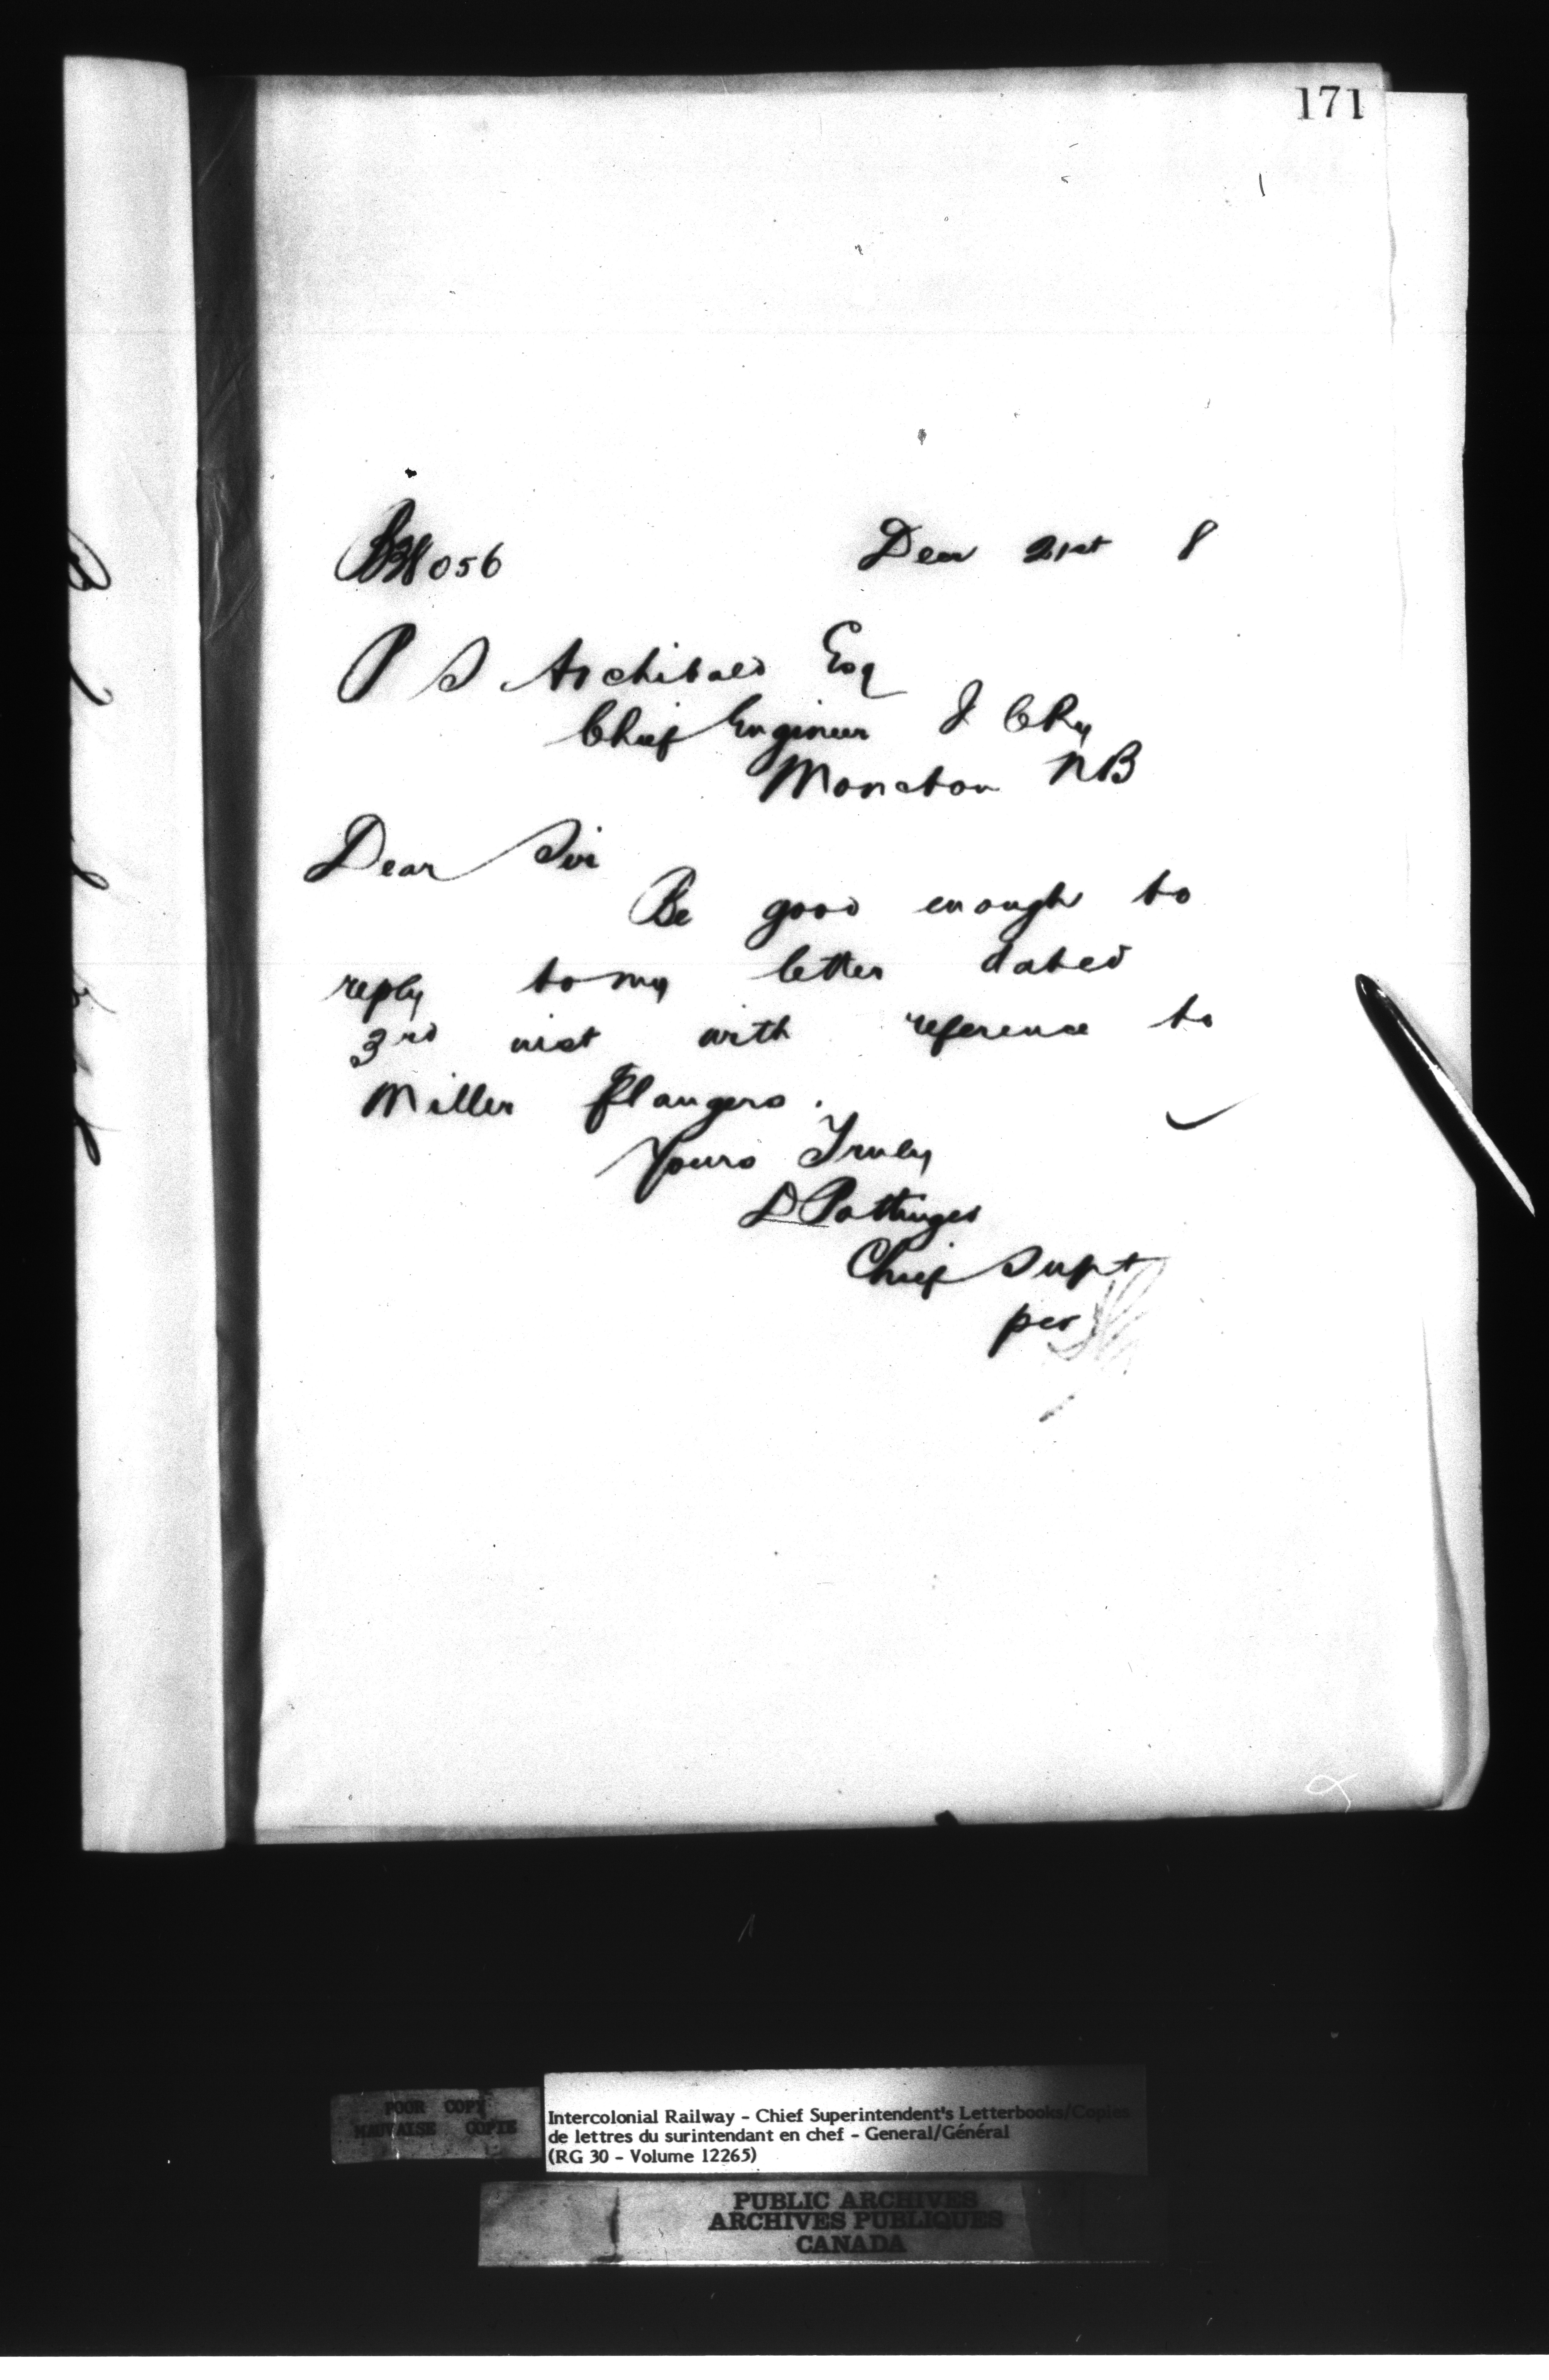 171
056
Dec 21st 8
P S Archibald Esq
Chief Engineer I C Ry
Moncton NB
Dear Sir
Be good enough to
reply to my letter dated
3rd inst with reference to
Miller Flangers.
Yours Truly
D Pottinger
Chief Supt
per
POOR COPY
MAUVAISE COPIE
Intercolonial Railway - Chief Superintendent's Letterbooks/Copies
de lettres du surintendant en chef - General/Général
(RG 30 - Volume 12265)
PUBLIC ARCHIVES
ARCHIVES PUBLIQUES
CANADA